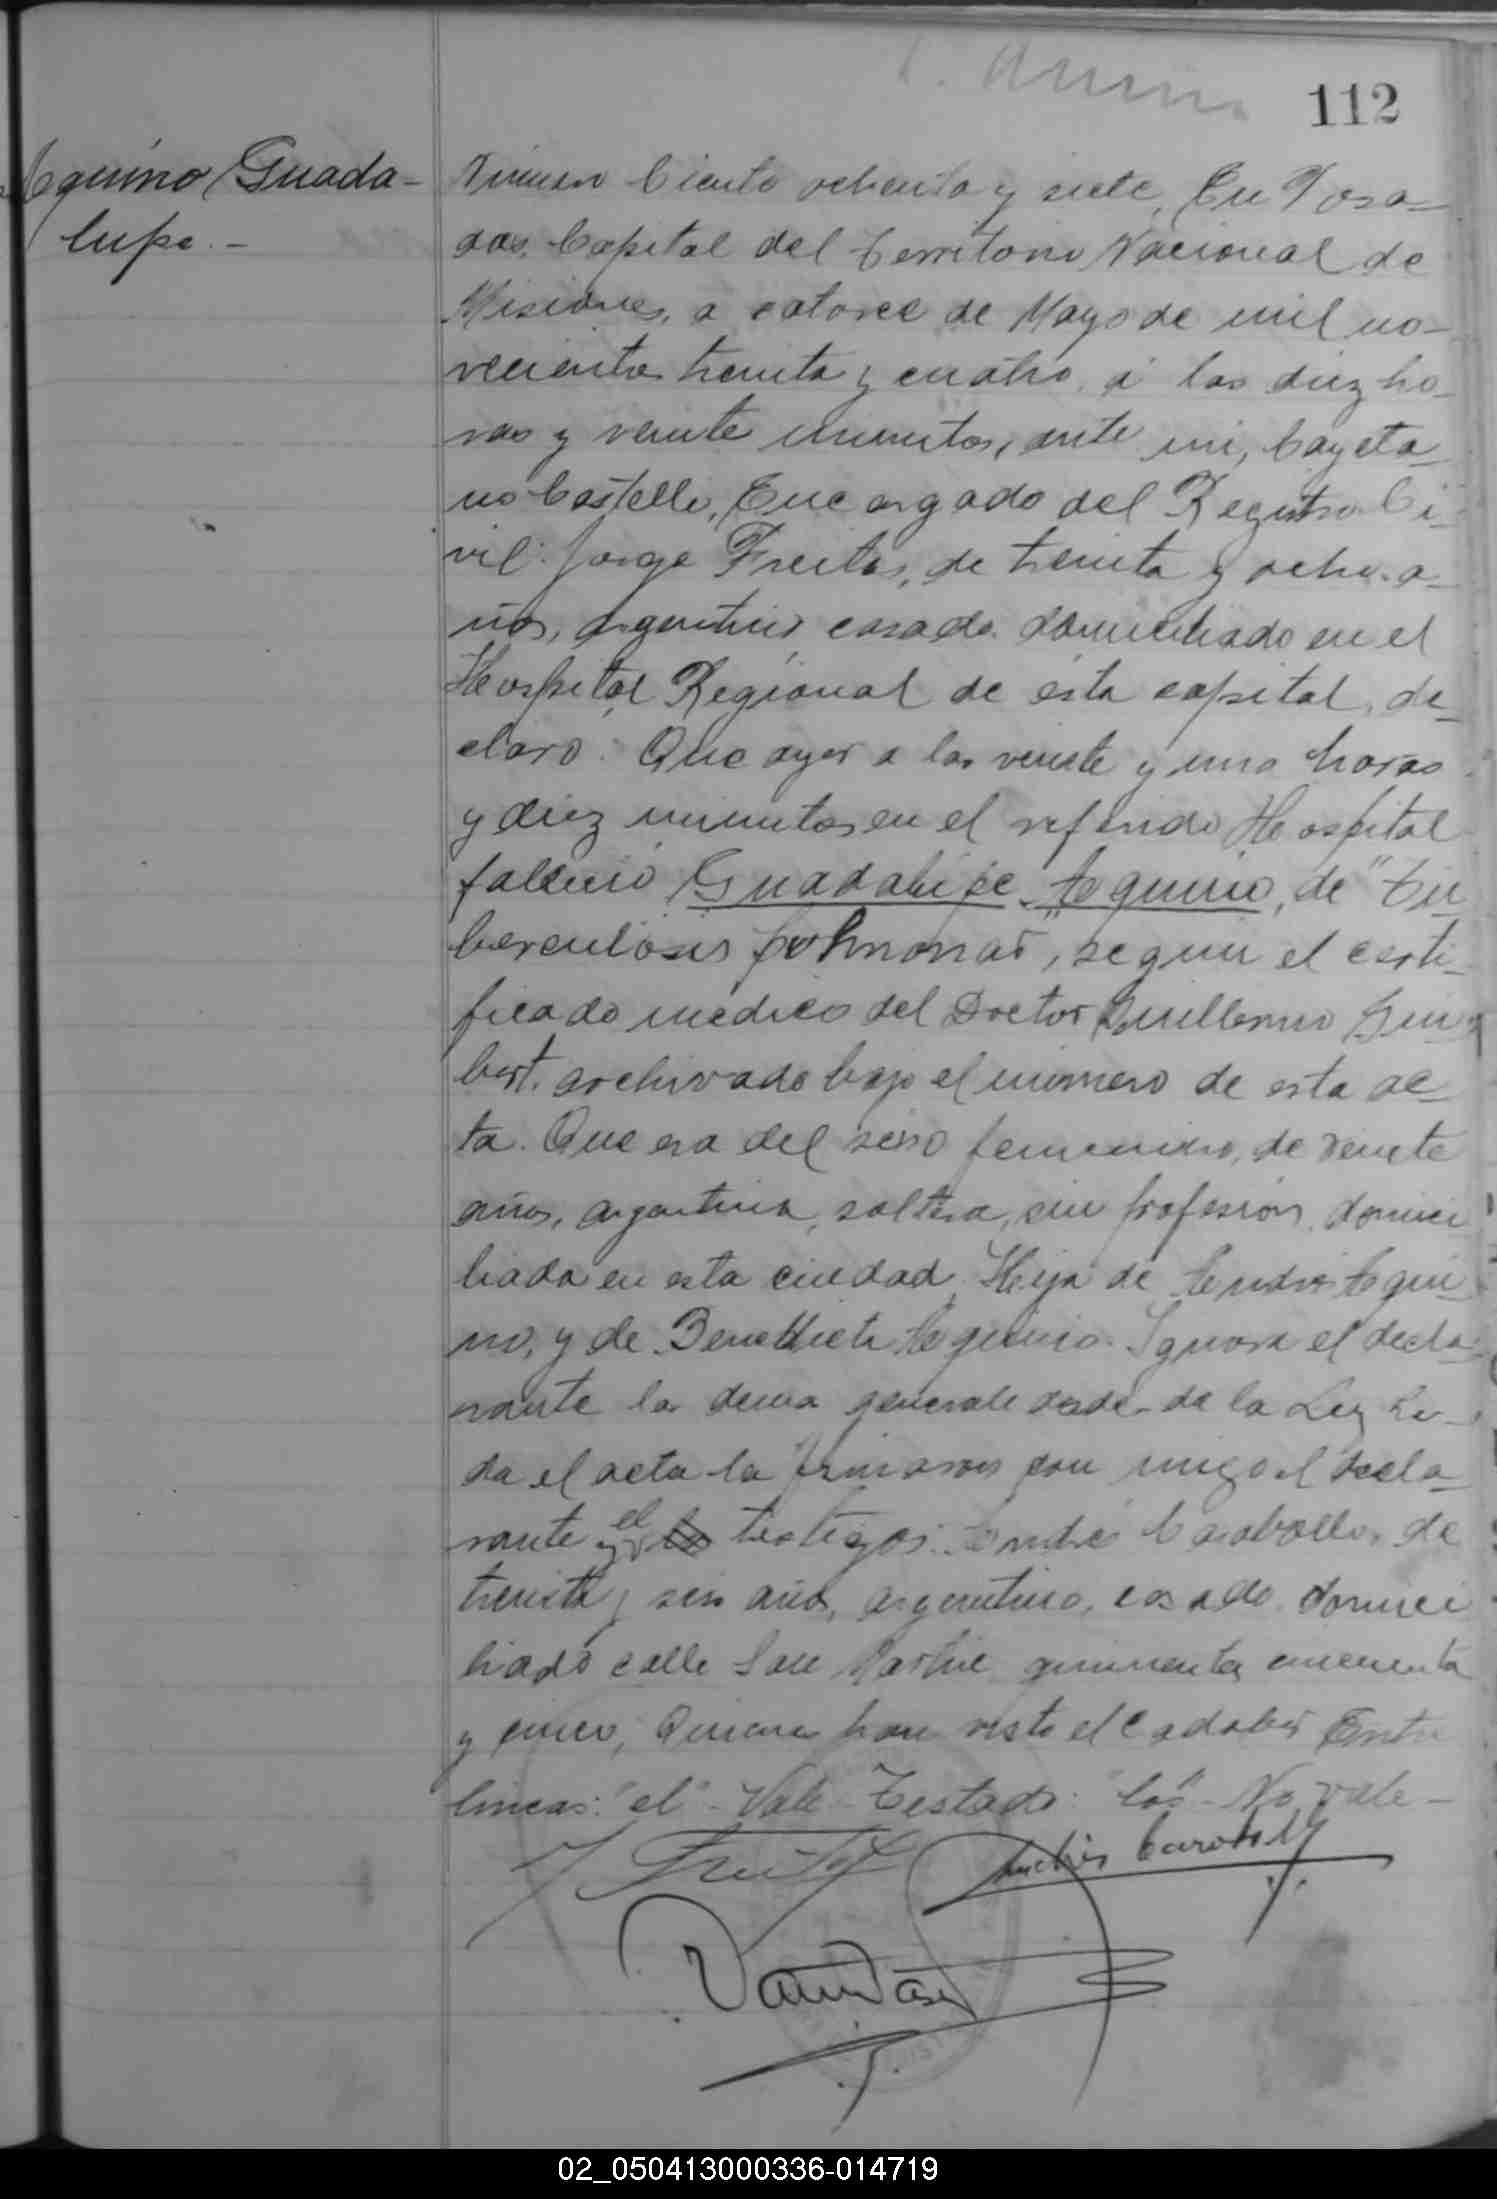 112
Aquino Guada-
lupe.-
Número Ciento ochenta y siete, En Posa-
das, Capital del Territorio Nacional de
Misiones, a catorce de Mayo de mil no-
vecientos treinta y cuatro, á las diez ho-
ras y veinte minutos, ante mi, Cayeta-
no Castelli, Encargado del Registro Ci-
vil: Jorge Freitas, de treinta y ocho a-
ños, argentino, casado, domiciliado en el
Hospital Regional de ésta capital, de-
claro: Que ayer a las veinte y una horas
y diez minutos en el referido Hospital
falleció Guadalupe Aquino, de "Tu
berculosis pulmonar", segun el certi-
ficado medico del Doctor Guillermo
archivado bajo el número de esta ac-
ta. Que era del sexo femenino, de veinte
años, argentina, soltera, sin profesión, domici
liada en esta ciudad, Hija de Andres Aqui
no, y de Benedicta Aquino. Ignora el decla-
rante las demas generalidades de la Ley Lei-
da el acta la firmaron con migo el decla-
rante y el los testigos: Andrés Caraballo, de
treinta y seis años, argentino, casado, domici
liado calle San Martin quinientos cincuenta
y cinco, Quienes han visto el cadaver Entre
lineas: "el" - Vale - Testado: "los" - No vale -
J Freitas
Andrés Caraballo
02_050413000336-014719